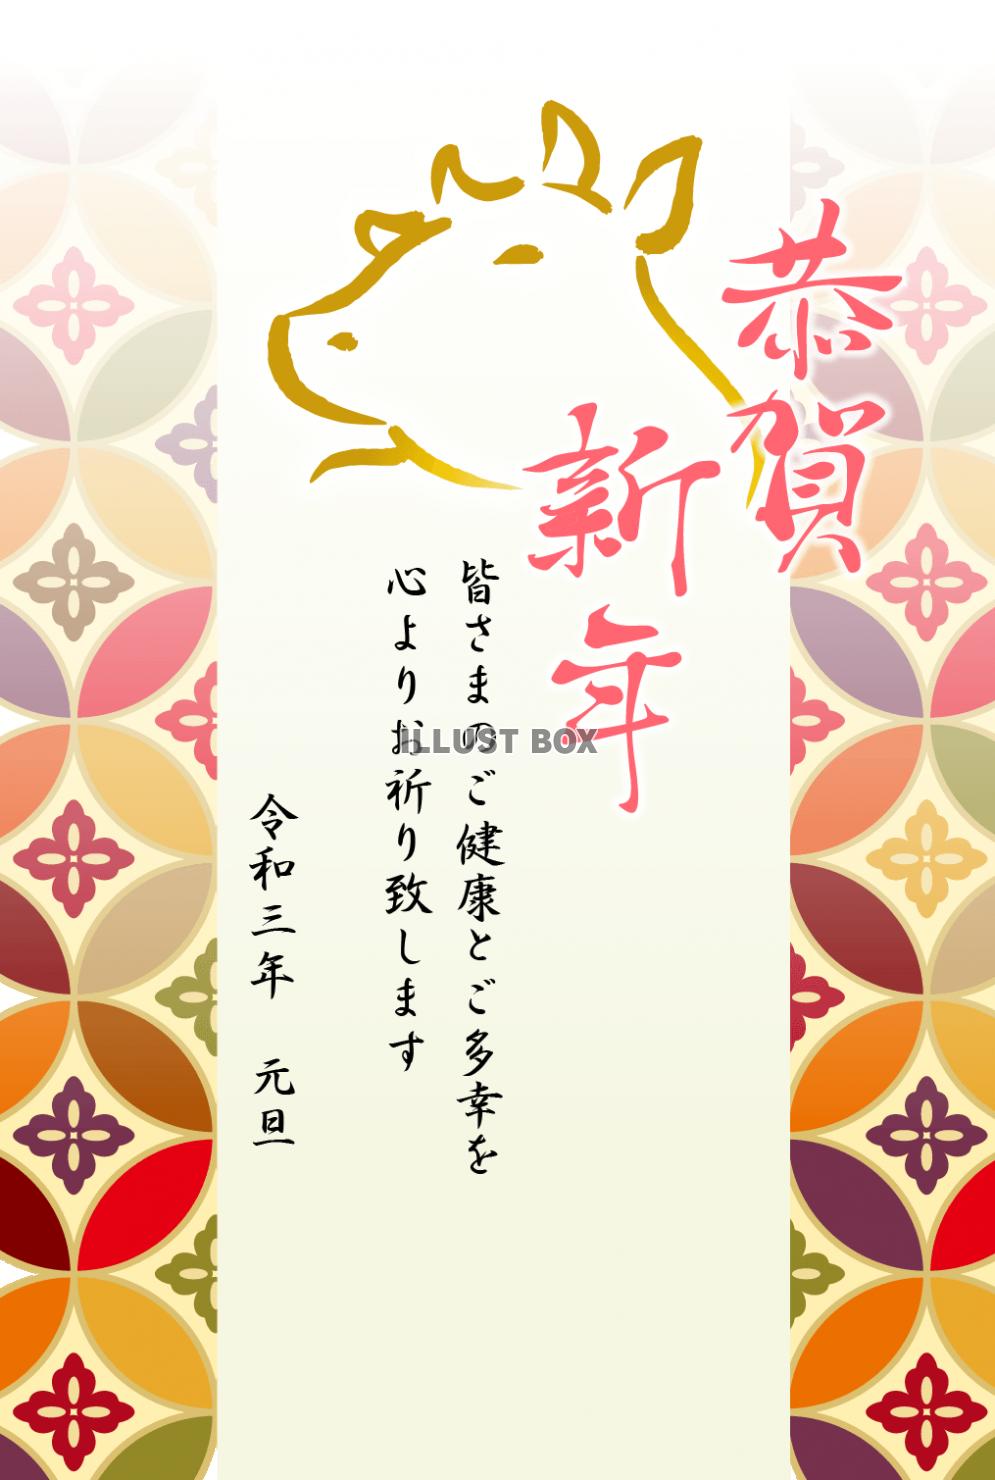 恭賀
新年
皆さまのご健康とご多幸を
心よりお祈り致します
令和三年　元旦
ILLUST BOX